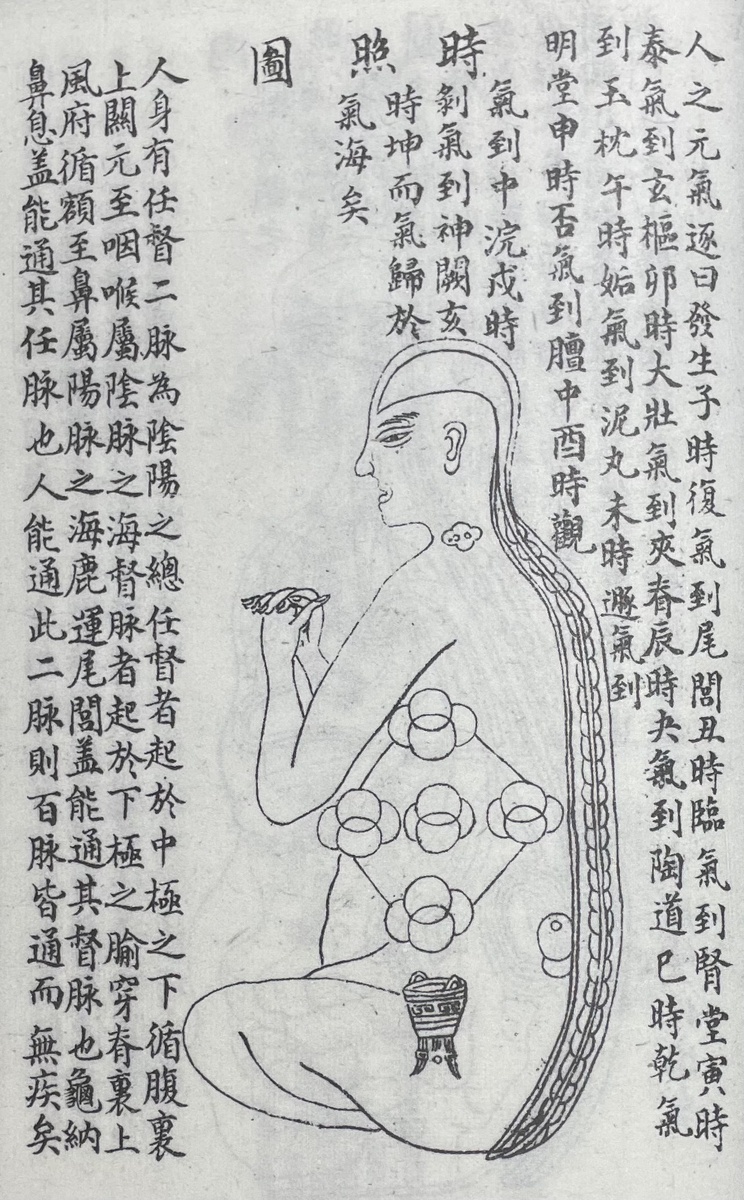 時照圖
人之元氣逐日發生子時復氣到尾閭丑時臨氣到腎堂寅時
泰氣到玄樞卯時大壯氣到夾脊辰時夬氣到陶道巳時乾氣
到玉枕午時姤氣到泥丸未時遯氣到
明堂申時否氣到膻中酉時觀
氣到中浣戌時
剝氣到神闕亥
時坤而氣歸於
氣海矣
人身有任督二脉為陰陽之總任督者起於中極之下循腹裏
上關元至咽喉屬陰脉之海督脉者起於下極之腧穿脊裏上
風府循額至鼻屬陽脉之海鹿運尾閭盖能通其督脉也龜納
鼻息盖能通其任脉也人能通此二脉則百脉皆通而無疾矣